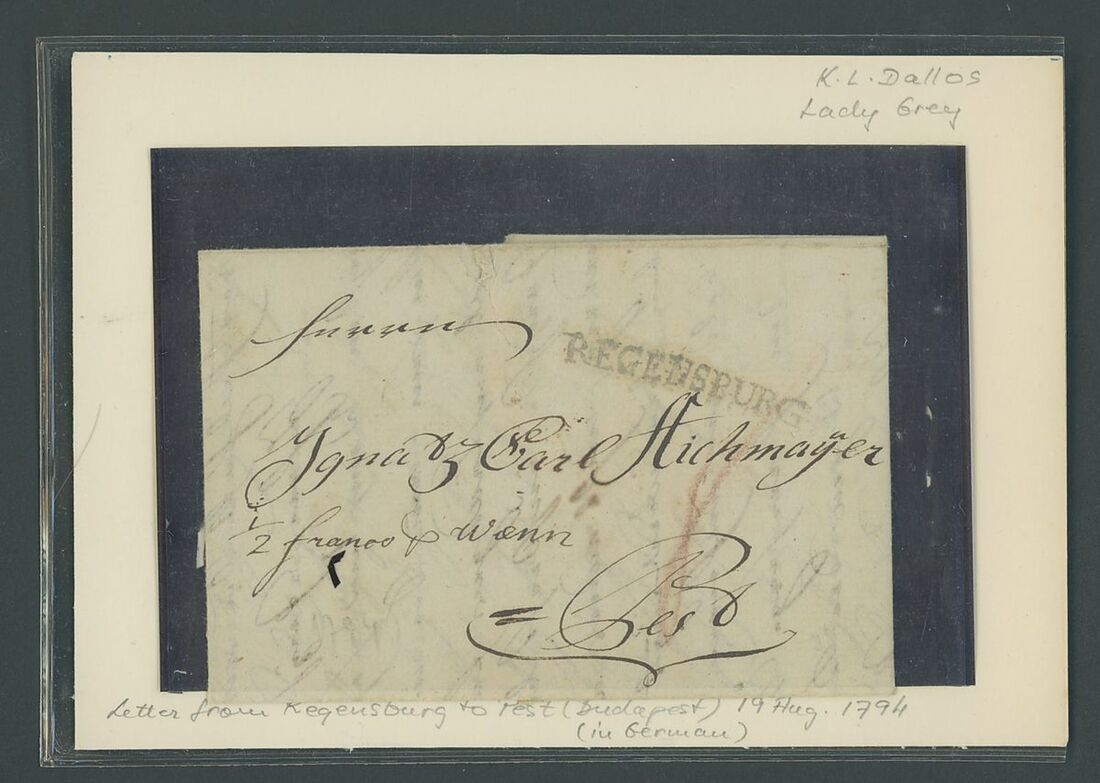 K. L. Dallos
Lady Grey
Herrn
REGENSBURG
Ignatz Carl Aichmaÿer
1/2 franco
Pest
Letter from Regensburg to Pest (Budapest) 19 Aug. 1794
(in German)